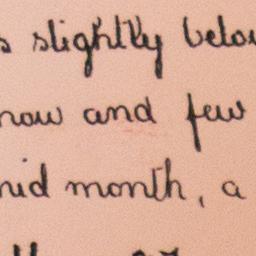 s slightly below
now and few
mid month, a